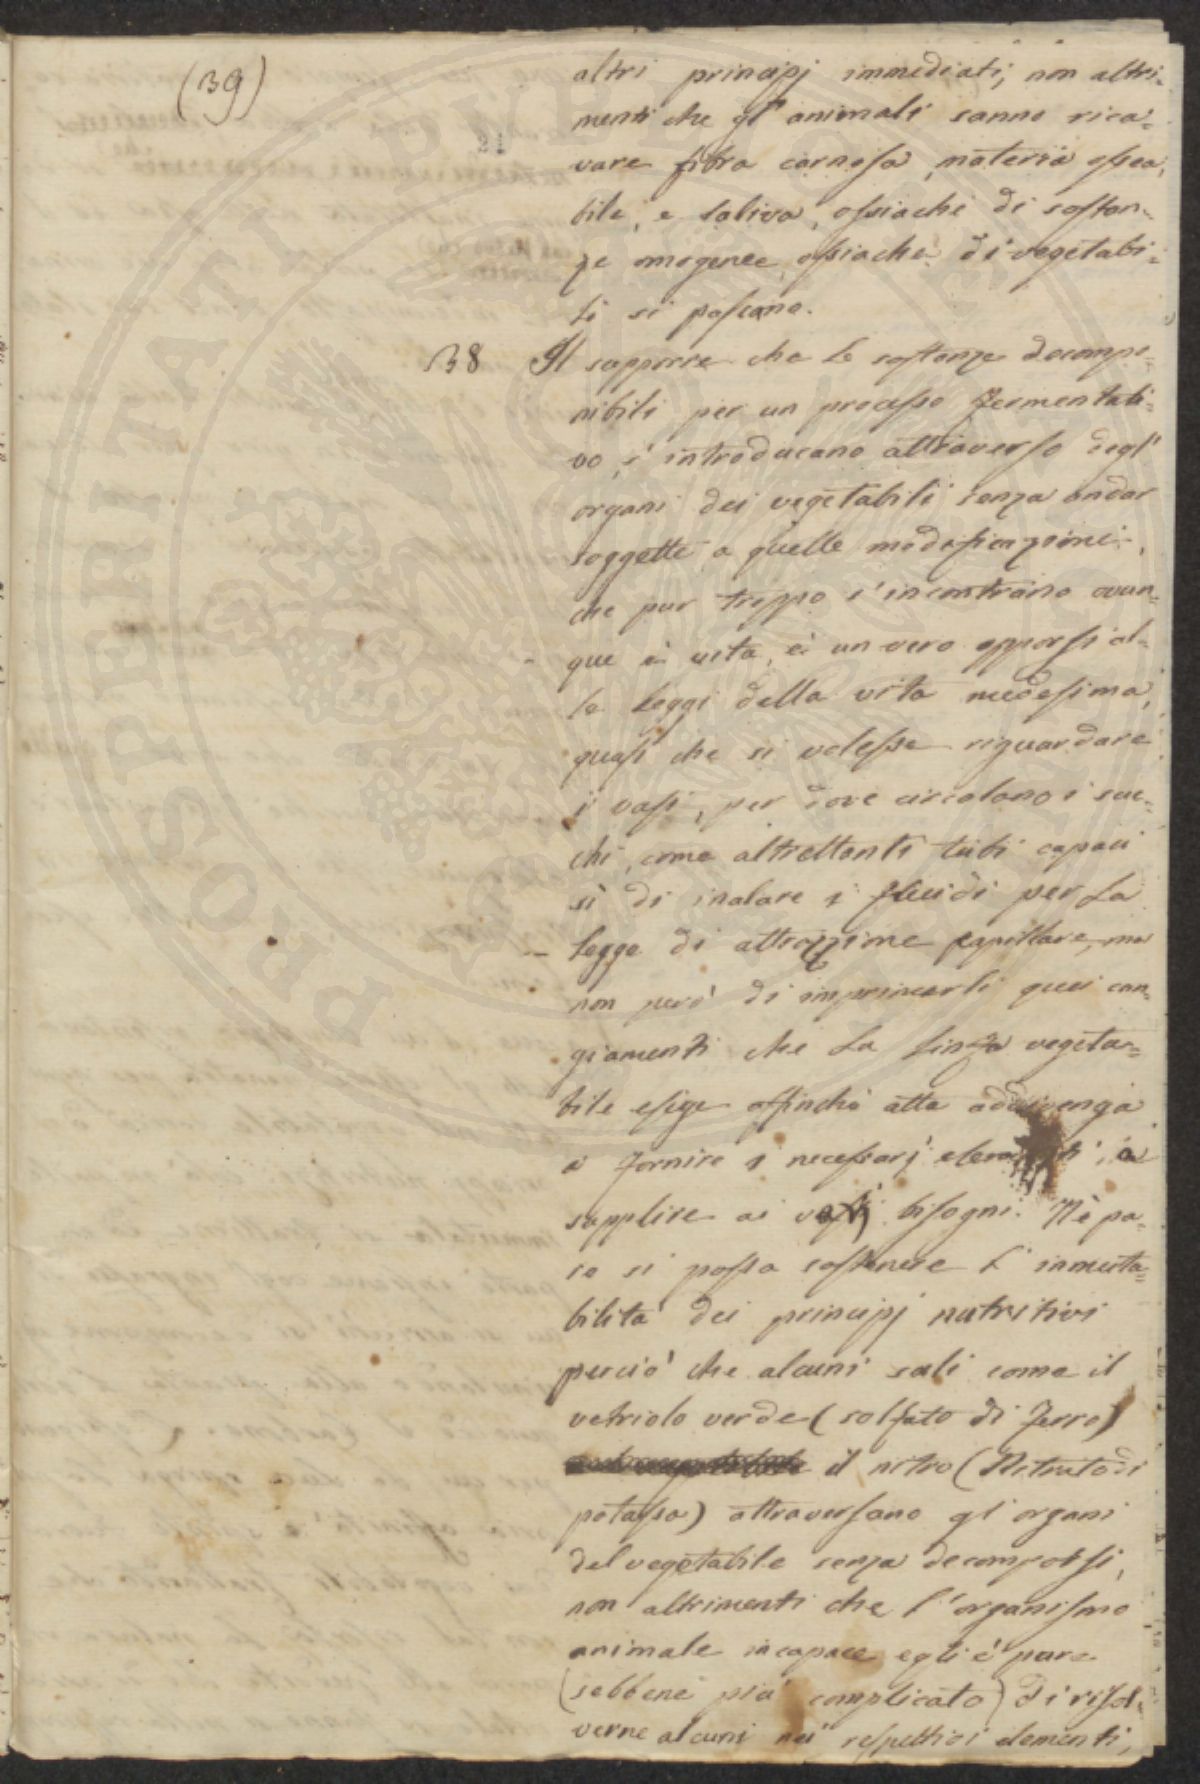 (39)
21
altri principj immediati, non altri-
menti che gl' animali sanno rica-
vare fibra carnosa, materia ossea,
bile, e saliva, ossiachè di sostan-
ze omogenee, ossiachè di vegetabi-
li si pascano.
38 Il supporre che le sostanze decompo-
nibili per un processo fermentati-
vo, s' introducano attraverso degl'
organi dei vegetabili senza andar
soggette a quelle modificazioni,
che pur troppo s' incontrano ovun-
que è vita, è un vero opporsi al-
le leggi della vita medesima,
quasi che si volesse riguardare
i vasi, per dove circolano i suc-
chi, come altrettanti tubi capaci
sì di inalare i fluidi per la
legge di attrazzione capillare, ma
non però di imprimerli quei can-
giamenti che la linfa vegeta-
bile esige affinchè atta addivenga
a fornire i necessarj elementi, a
supplire ai bisogni. Nè pa-
re si possa sostenere l' immuta-
bilità dei principj nutritivi
perciò che alcuni sali come il
vetriolo verde (solfato di ferro)
il nitro (Nitrato di
potassa) attraversano gl' organi
del vegetabile senza decomporsi,
non altrimenti che l' organismo
animale incapace egli è pure
(sebbene più complicato) di risol-
verne alcuni nei respettivi elementi,
PROSPERITATI PVBLICAE